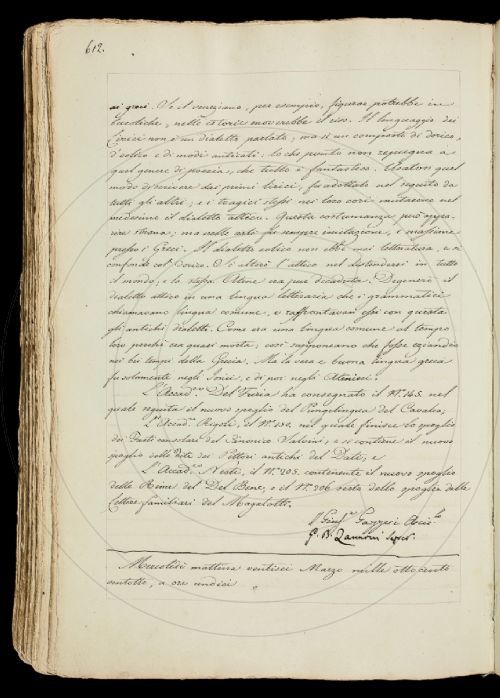 612.
ai greci. Se il veneziano, per esempio, figurar potrebbe in
bucoliche, nelle istorie moverebbe il riso. Il linguaggio dei
lirici non è un dialetto parlato, ma sì un composto di dorico,
d'eolico e di modi antiquati: lo che punto non repugna a
quel genere di poesia, che tutto è fantastico. Usaron quel
modo di scrivere dai primi lirici, fu adottato nel seguito da
tutti gli altri; e i tragici stessi nei loro cori imitarono nel
medesimo il dialetto attico. Questa costumanza può appa-
rire strana; ma nelle arti fu sempre imitazione, e massime
presso i Greci. Il dialetto eolico non ebbe mai letteratura, e si
confonde col Dorico. Si alterò l'attico nel distendersi in tutto
il mondo, e la stessa Atene era pur decaduta. Degenerò il
dialetto attico in una lingua letteraria che i grammatici
chiamavano lingua comune, e raffrontavan essi con questa
gli antichi dialetti. Come era una lingua comune al tempo
loro perchè era quasi morta, così supponeano che fosse eziandio
nei bei tempi della Grecia. Ma la vera e buona lingua greca
fu solamente negli Ionici, e di poi negli Ateniesi.
L'Accad.co Del Furia ha consegnato il N.o 145. nel
quale seguita il nuovo spoglio del Pungilingua del Cavalca;
L'Accad.co Rigoli, il N.o 130. nel quale finisce lo spoglio
dei Fasti consolari del Canonico Salvini, e si contiene il nuovo
spoglio delle Vite dei Pittori antichi del Dati; e
L'Accad.co Nesti, il N.o 205. contenente il nuovo spoglio
delle Rime del Del Bene, e il N.o 206 resto dello spoglio delle
Lettere familiari del Magalotti.
G. B. Zannoni Segret.
Mercoledì mattina ventisei Marzo mille ottocento
ventotto, a ore undici